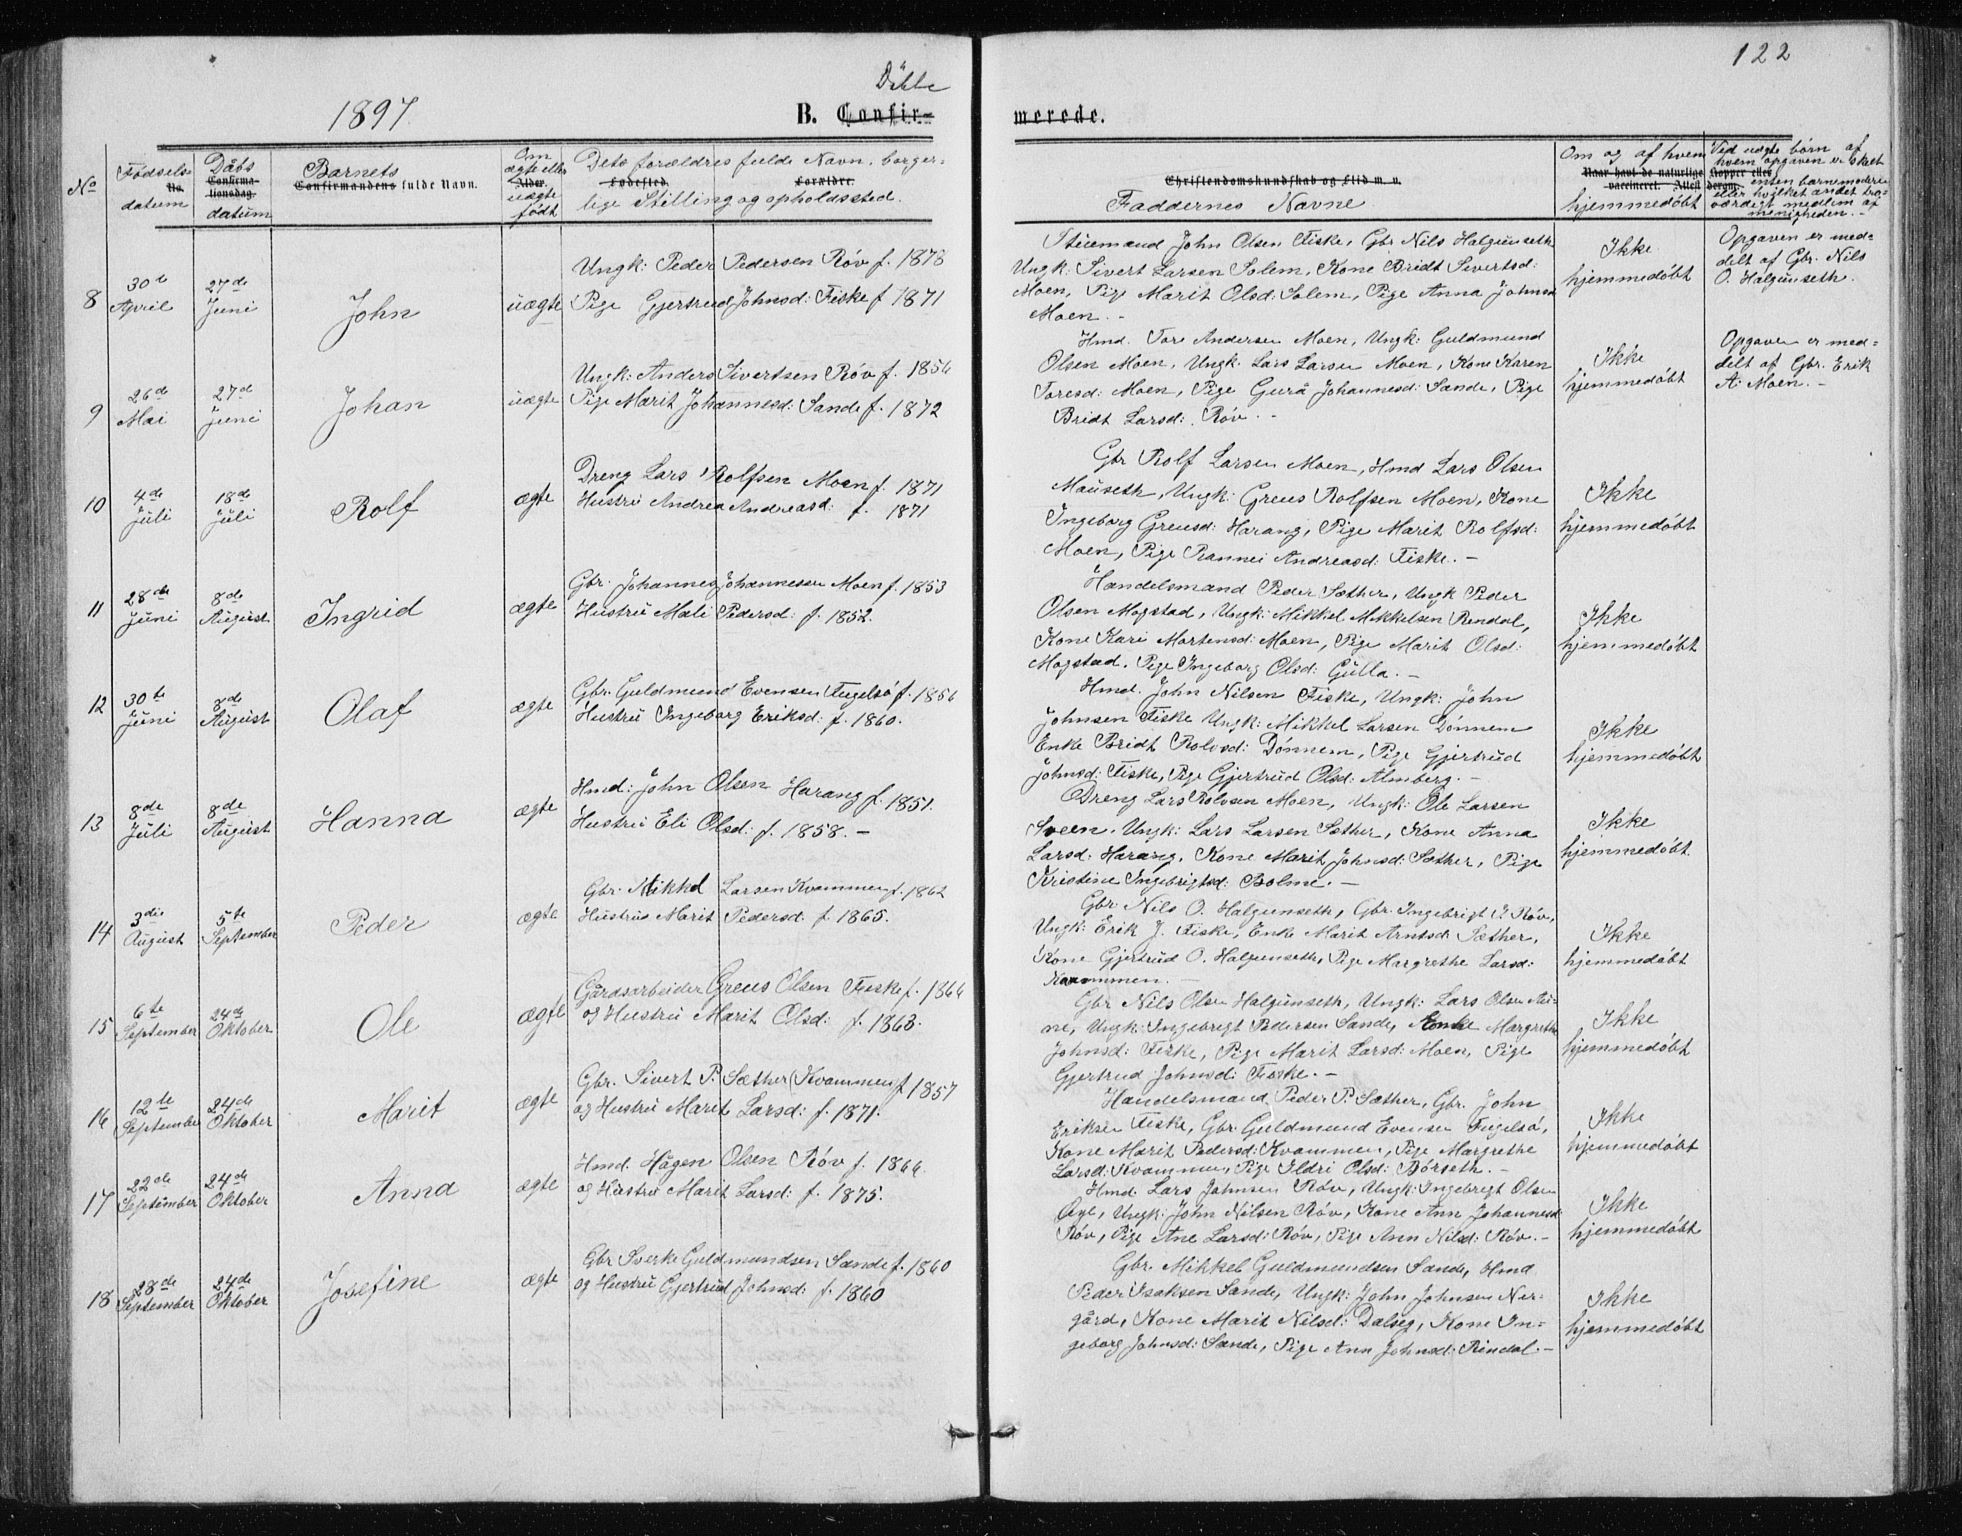 122
1897.
Döbte
B. Confirmerede.
No
Fødsels
No.
datum
Dåbs
Confirmationsdag.
datum
Barnets
Confirmandens fulde Navn.
Om
ægte eller
Alder.
uægte
født
Dets forældres fulde Navn, borger-
Fødested. Forældre.
lige Stilling og opholdssted.
Christendomskundskab og Flid m. v.
Faddernes Navne
Om og af hvem
Naar havt de naturlige Kopper eller
vaccineret. Attest derom.
hjemmedøbt
Ved uægte børn af
hvem opgaven er skeet
enten barnemoderen
eller hvilket andet tro-
værdigt medlem af
menigheden. -
8
30te
April
27de
Juni
John
uægte
Ungk: Peder Pedersen Røv f. 1878
Pige Gjertrud Johnsd: Fiske f 1871
Stuemand John Olsen Fiske, Gbr Nils Halgunseth
Ungk: Sivert Larsen Solem, Kone Bridt Sivertsd:
Moen, Pige Marit Olsd: Solem, Pige Anna Johnsd
Moen. -
Ikke
hjemmedøbt
Opgaven er med-
delt af Gbr. Nils
O. Halgunseth.
9
26de
Mai
27de
Juni
Johan
uægte
Ungk: Anders Sivertsen Røv f. 1856
Pige Marit Johannesd: Sande f. 1872
Hmd. Tore Andersen Moen, Ungk: Guldmund
Olsen Moen, Ungk. Lars Larsen Moen, Kone Karen
Toresd: Moen, Pige Gurå Johannesd: Sande, Pige
Bridt Larsd: Røv. -
Ikke
hjemmedøbt
Opgaven er med=
delt af Gbr. Erik
A. Moen. -
10
4de
Juli
18de
Juli
Rolf
ægte
Dreng Lars Rolfsen Moen f. 1871
Hustru Andrea Andreasd: f. 1871
Gbr Rolf Larsen Moen, Hmd Lars Olsen
Mauseth, Ungk: Greus Rolfsen Moen, Kone
Ingeborg Greusd: Harang, Pige Marit Rolfsd:
Moen, Pige Rannei Andreasd: Fiske. -
Ikke
hjemmedøbt
11
28de
Juni
8de
August
Ingrid
ægte
Gbr. Johannes Johannessen Moen f. 1853
Hustru Mali Pedersd: f. 1852.
Handelsmand Peder Sæther, Ungk Peder
Olsen Mogstad, Ungk: Mikkel Mikkelsen Rendal,
Kone Kari Mortensd: Moen, Pige Marit Olsd:
Mogstad. Pige Ingeborg Olsd: Gulla. -
Ikke
hjemmedøbt
12
30te
Juni
8de
August
Olaf
ægte
Gbr. Guldmund Evensen Fugelsø f. 1856
Hustru Ingeborg Eriksd: f. 1860.
Hmd. John Nilsen Fiske, Ungk: John
Johnsen Fiske Ungk: Mikkel Larsen Dønnem
Enke Bridt Rolvsd: Dønnem, Pige Gjertrud
Johnsd: Fiske, Pige Gjertrud Olsd: Almberg. -
Ikke
hjemmedøbt
13
8de
Juli
8de
August
Hanna
ægte
Hmd: John Olsen Harang f. 1851.
Hustru Eli Olsd: f. 1858. -
Dreng Lars Rolvsen Moen, Ungk: Ole Larsen
Sveen. Ungk: Lars Larsen Sæther, Kone Anna
Larsd: Harang, Kone Marit Johnsd: Sæther, Pige
Kristine Ingebrigtsd: Bolme. -
Ikke
hjemmedøbt.
14
3die
August
5te
September
Peder
ægte
Gbr. Mikkel Larsen Kvammen f. 1862
Hustru Marit Pedersd: f. 1865.
Gbr: Nils O. Halgunseth, Gbr: Ingebrigt P. Røv,
Ungk: Erik J. Fiske, Enke Marit Arntsd: Sæther,
Kone Gjertrud O. Halgunseth, Pige Margrethe Larsd:
Kvammen. -
Ikke
hjemmedøbt
15
6te
September
24de
Oktober
Ole
ægte
Gårdsarbeider Greus Olsen Fiske f. 1866
og Hustru Marit Olsd: f. 1863.
Gbr Nils Olsen Halgunseth, Ungk: Lars Olsen
ne, Ungk: Ingebrigt Pedersen Sande, Enke Margrethe
Johnsd: Fiske, Pige Marit Larsd: Moen, Pige
Gjertrud Johnsd: Fiske. -
Ikke
hjemmedøbt
16
12te
September
24de
Oktober
Marit
ægte
Gbr. Sivert P. Sæther (Kvammen) f 1857
og Hustru Marit Larsd: f. 1871.
Handelsmand Peder P. Sæther, Gbr. John
Eriksen Fiske, Gbr: Guldmund Evensen Fugelsø,
Kone Marit Pedersd: Kvammen, Pige Margrethe
Larsd: Kvammen, Pige Ildri Olsd: Børseth. -
Ikke
hjemmedøbt
17
22de
September
24de
Oktober
Anna
ægte
Hmd. Hågen Olsen Røv f. 1866.
og Hustru Marit Larsd: f. 1875.
Hmd. Lars Johnsen Røv, Ungk: Ingebrigt Olsen
Øye, Ungk: John Nilsen Røv, Kone Ann Johannesd
Røv, Pige Ane Larsd: Røv, Pige Ann Nilsd: Røv. -
Ikke
hjemmedøbt
18
28de
September
24de
Oktober
Josefine
ægte
Gbr Sverke Guldmundsen Sande f. 1860
og Hustru Gjertrud Johnsd: f. 1860
Gbr. Mikkel Guldmundsen Sande, Hmd
Peder Isaksen Sande, Ungk: John Johnsen Ner-
gård, Kone Marit Nilsd: Dalseg, Kone In-
geborg Johnsd: Sande, Pige Ann Johnsd: Rindal. -
Ikke
hjemmedøbt